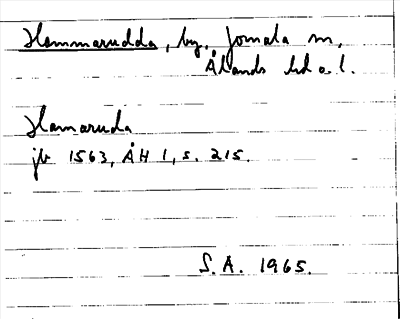 Hammarudda, by, Jomala sn,
Ålands hd o l.
Hamaruda
jb 1563, ÅH 1, s. 215.
S. A. 1965.